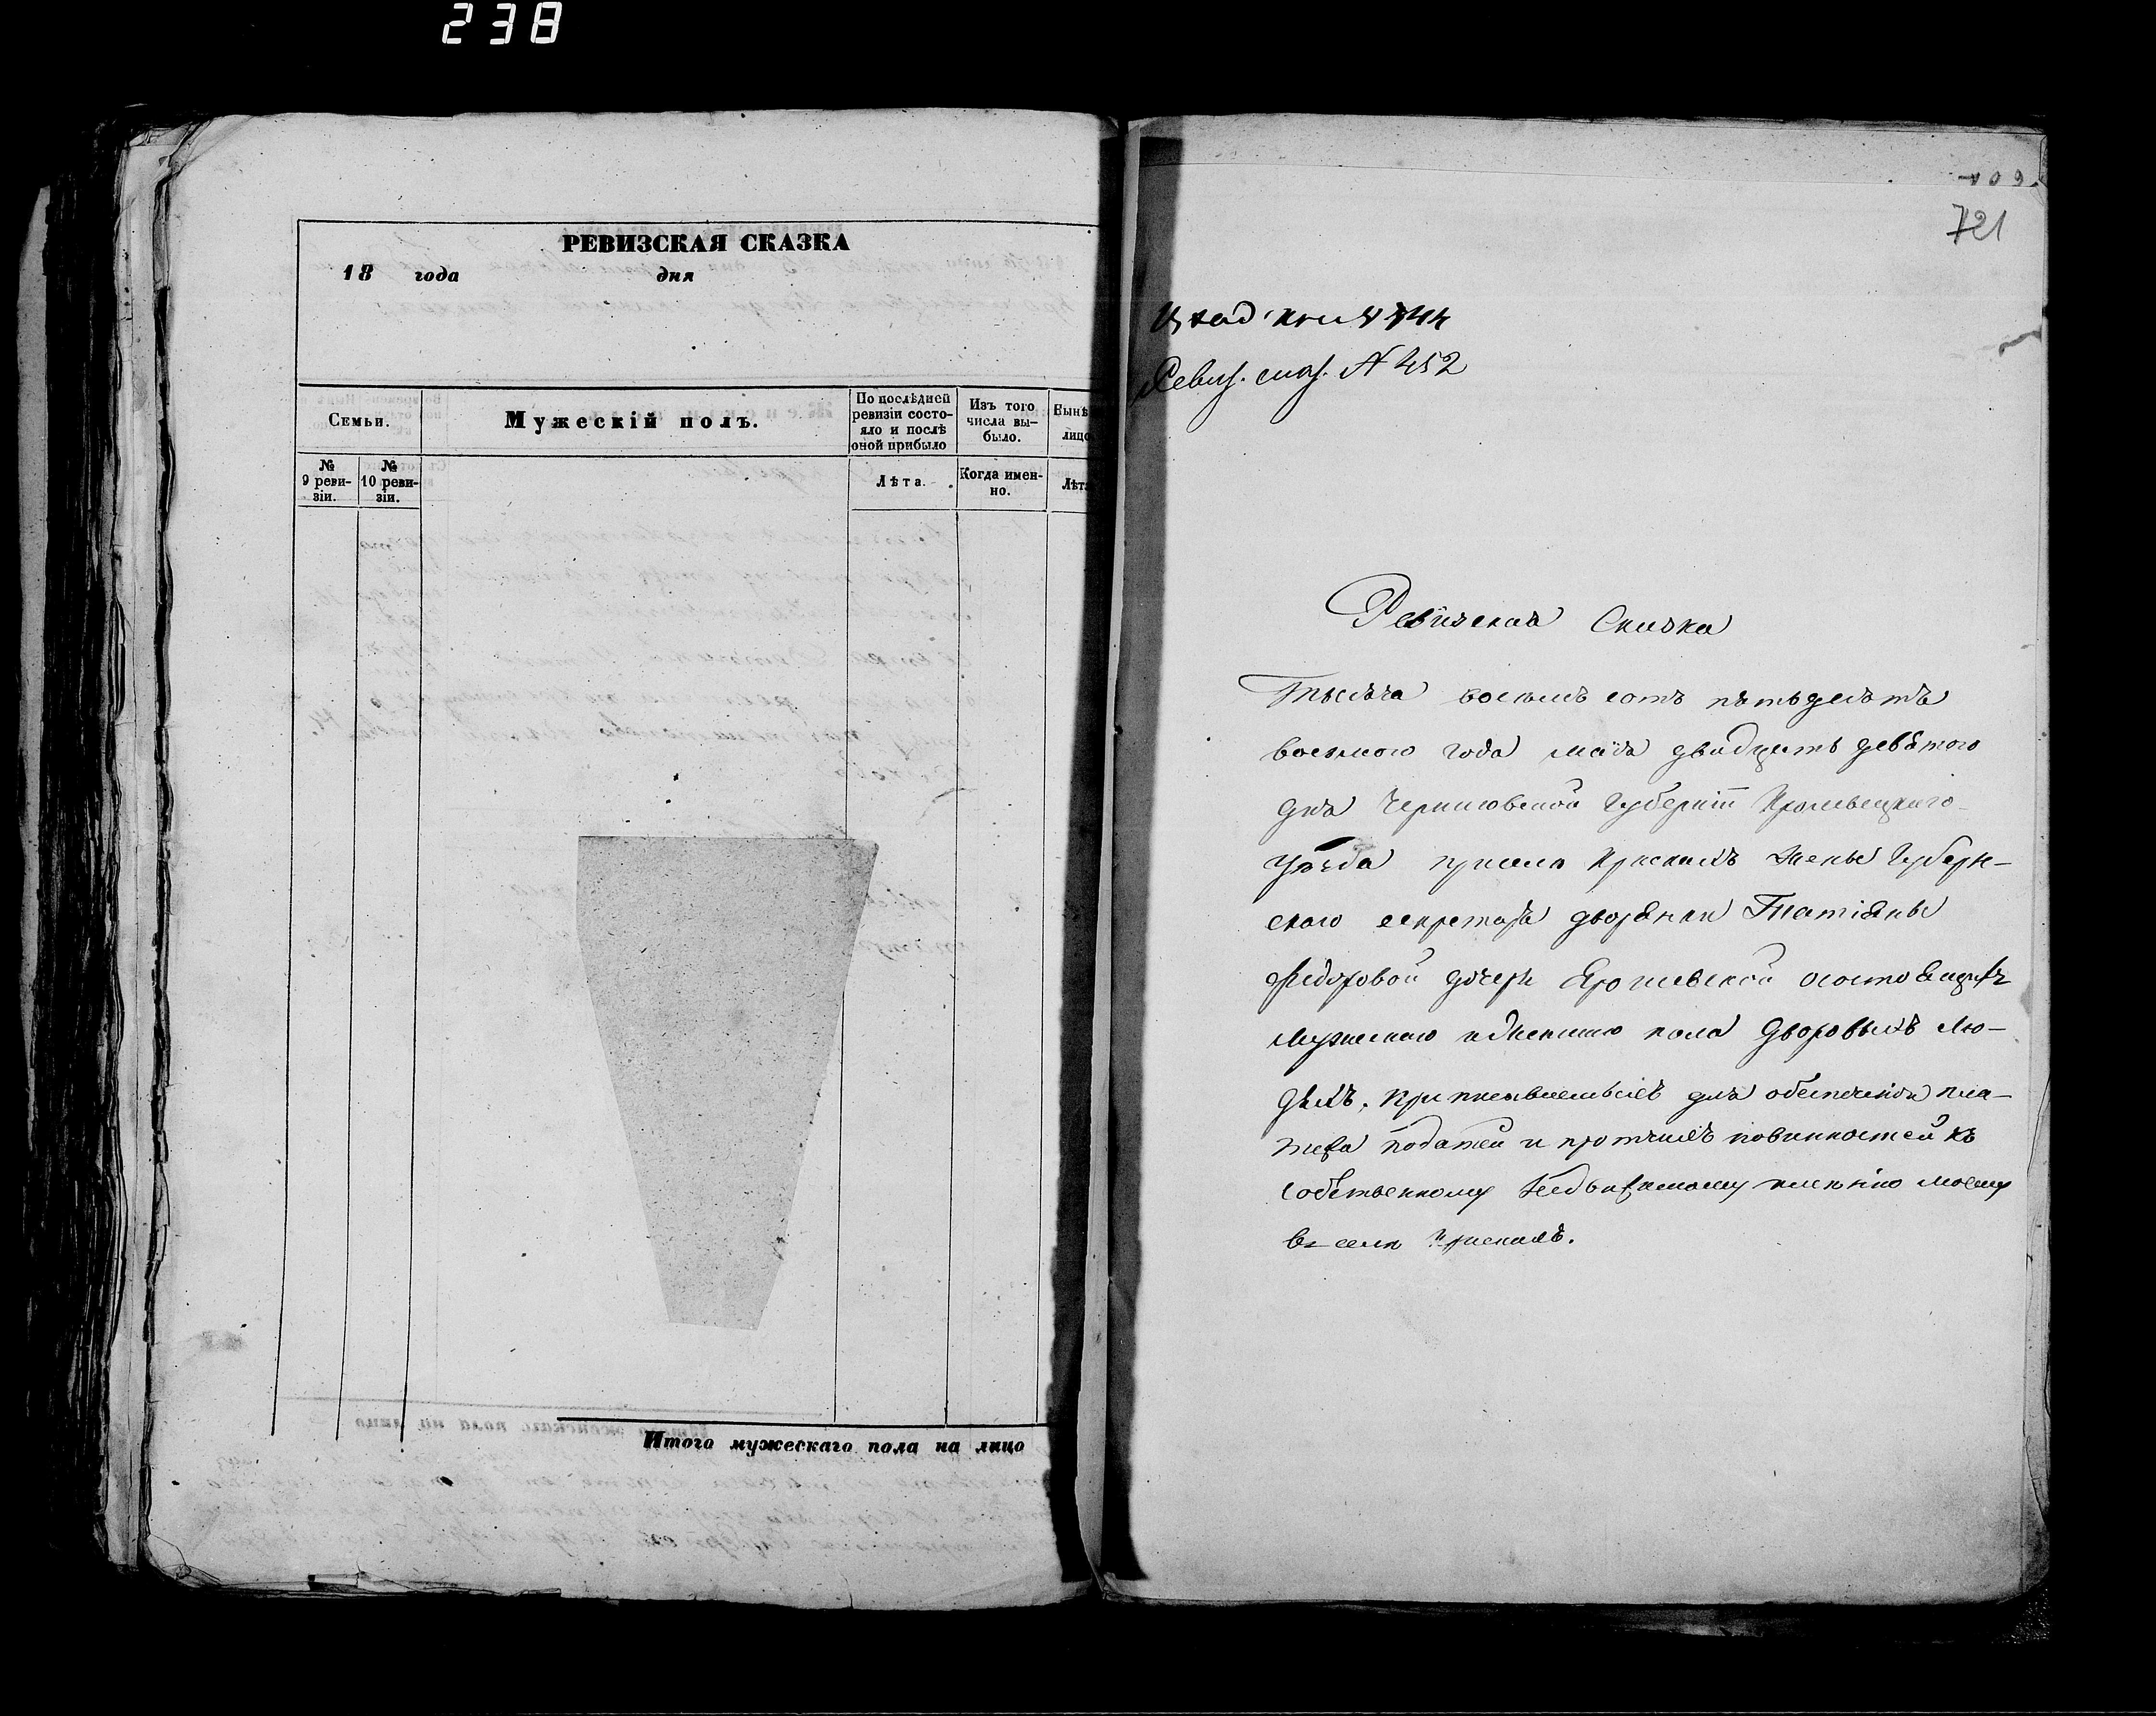 238
РЕВИЗСКАЯ СКАЗКА
18 года дня
Семьи.
Мужескій полъ.
По послѣдней
ревизіи состо-
яло и послѣ
оной прибыло
Изъ того
числа вы-
было.
Нынѣ
лицо
№
9 реви-
зіи.
№
10 реви-
зіи.
Лѣта.
Когда имен-
но.
Лѣта
Итого мужескаго пола на лицо
109.
721
Ревиз. сказ. № 452
Ревизская Сказка
Тысяча восемь сотъ пятьдесятъ
восьмого года маія двадцать девятого
дня Черниговской Губерніи Кролевецкаго
уѣзда
жены Губерн-
ского секретаря дворянки Татіяны
Федоровой дочери о состоящихъ
мужеского и женского пола дворовыхъ лю-
дяхъ, для обеспеченія пла-
тежа податей и протчихъ повинностей къ
собственному недвижимому имѣнію моему
въ селѣ